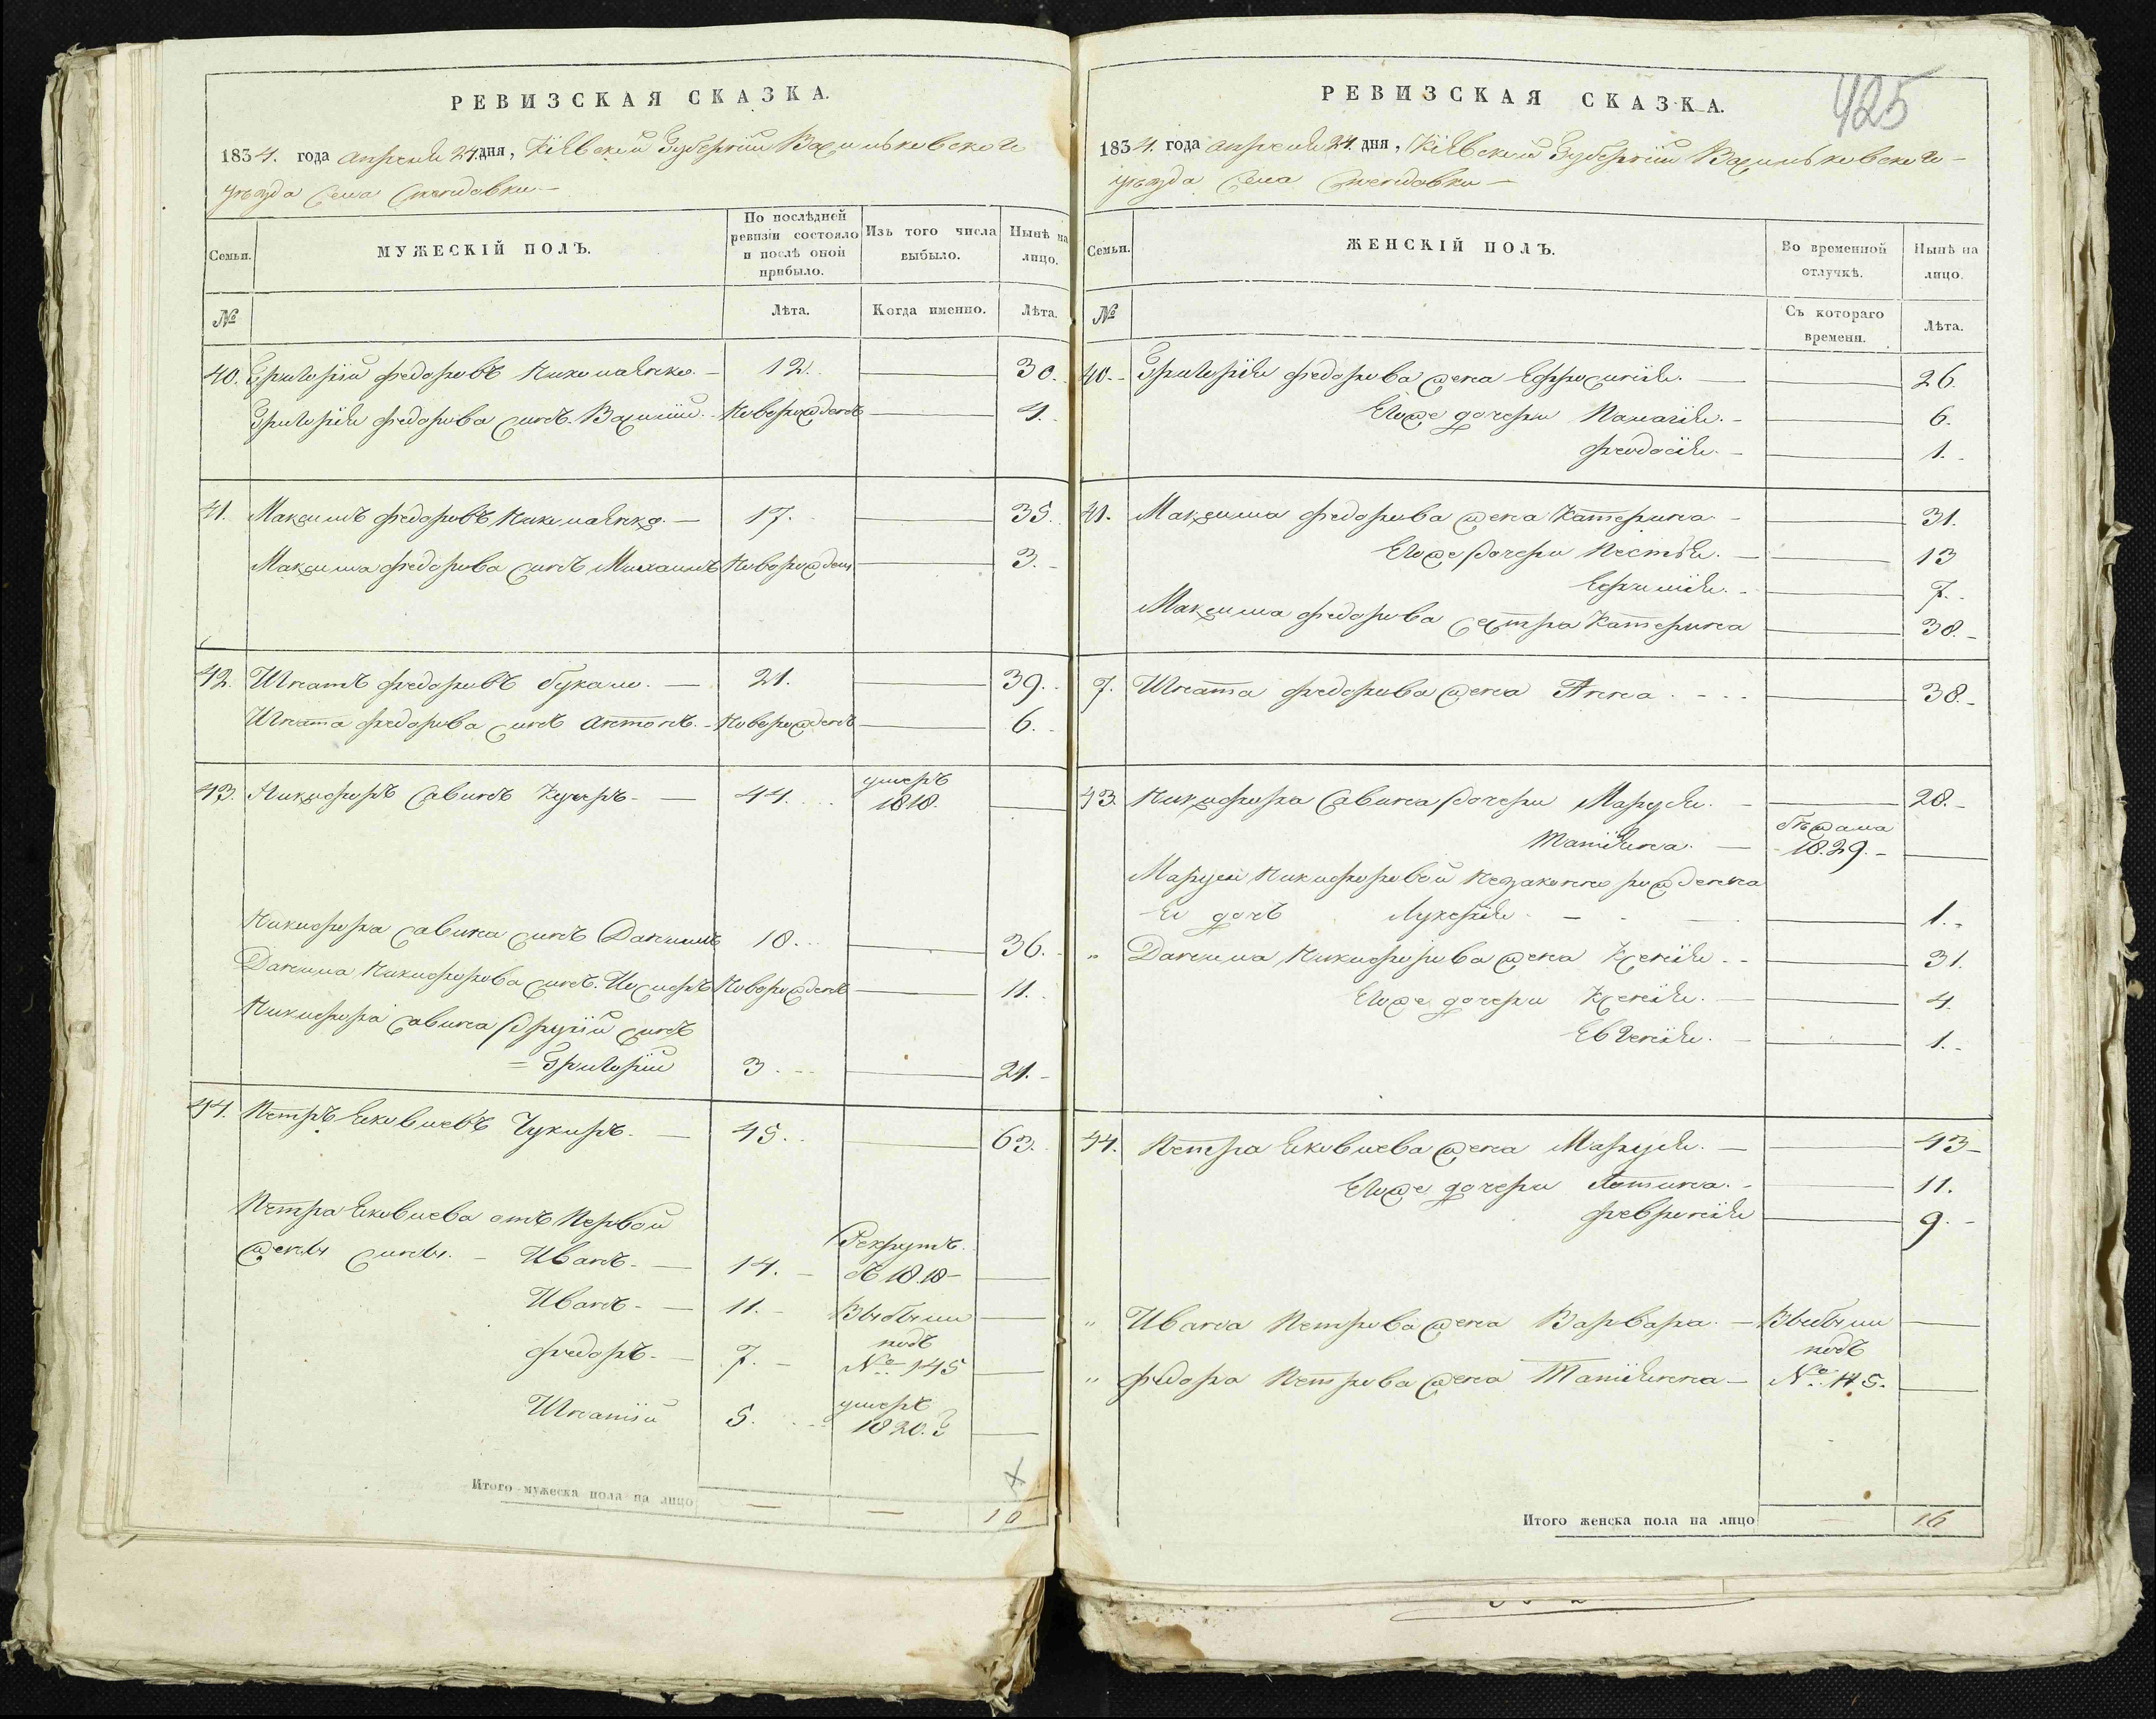 РЕВИЗСКАЯ СКАЗКА.
1834. года апреля 24. дня, Кіевской Губерніи Васильковского
уѣзда Села
Семьи. МУЖЕСКІЙ ПОЛЪ. По послѣдней ревизіи состояло и послѣ оной прибыло. Изъ того числа выбыло. Нынѣ на лицо.
№ Лѣта. Когда именно. Лѣта.
40. Григорій Федоровъ 12. 30.
Григорія Федорова сынъ Василій Новорожденъ 4.
41. Максимъ Федоровъ 17. 35.
Максима Федорова сынъ Михаилъ Новорожден 3.
42. Игнатъ Федоровъ 21. 39.
Игната Федорова сынъ Антонъ. Новорожденъ 6.
43. Никифоръ Савинъ Кучеръ 44. умеръ 1818.
Никифора Савина сынъ Данилъ 18. 36.
Данила Никифорова сынъ Иосифъ Новорожденъ 11.
Никифора Савина другій сынъ
= Григорій 3. 21.
44. Петръ Яковлевъ 45. 63.
Петра Яковлева отъ первой
жены сыны. Иванъ. 14. Рекрутъ въ 1818
Иванъ. 11. Выбыли
Федоръ. 7. подъ № 145
Игнатій 5. умеръ 1820. г
Итого мужеска пола на лицо 10
425
РЕВИЗСКАЯ СКАЗКА.
1834. года апреля 24. дня, Кіевской Губерніи Васильковского
уѣзда Села
Семьи. ЖЕНСКІЙ ПОЛЪ. Во временной отлучкѣ. Нынѣ на лицо.
№ Съ котораго времени. Лѣта.
40. Григорія Федорова жена Ефросинія. 26.
Егоже дочери Палагія. 6.
Феодосія. 1.
41. Максима Федорова жена Катерина 31.
Егоже дочери Настя. 13
Ефимія. 7.
Максима Федорова сестра Катерина 38.
7. Игната Федорова жена Анна. 38.
43. Никифора Савина дочери Маруся. 28.
Татіяна. бѣжала 1829.
Маруси Никифоровой незаконно рожденна
ея дочъ Лукерія 1.
" Данила Никифорова жена Ксенія 31.
Егоже дочери Ксенія. 4.
Евгенія. 1.
44. Петра Яковлева жена Маруся. 43
Егоже дочери 11.
Февронія 9.
" Ивана Петрова жена Варвара. Выбыли
подъ
" Федора Петрова жена Татіянна № 145.
Итого женска пола на лицо 16